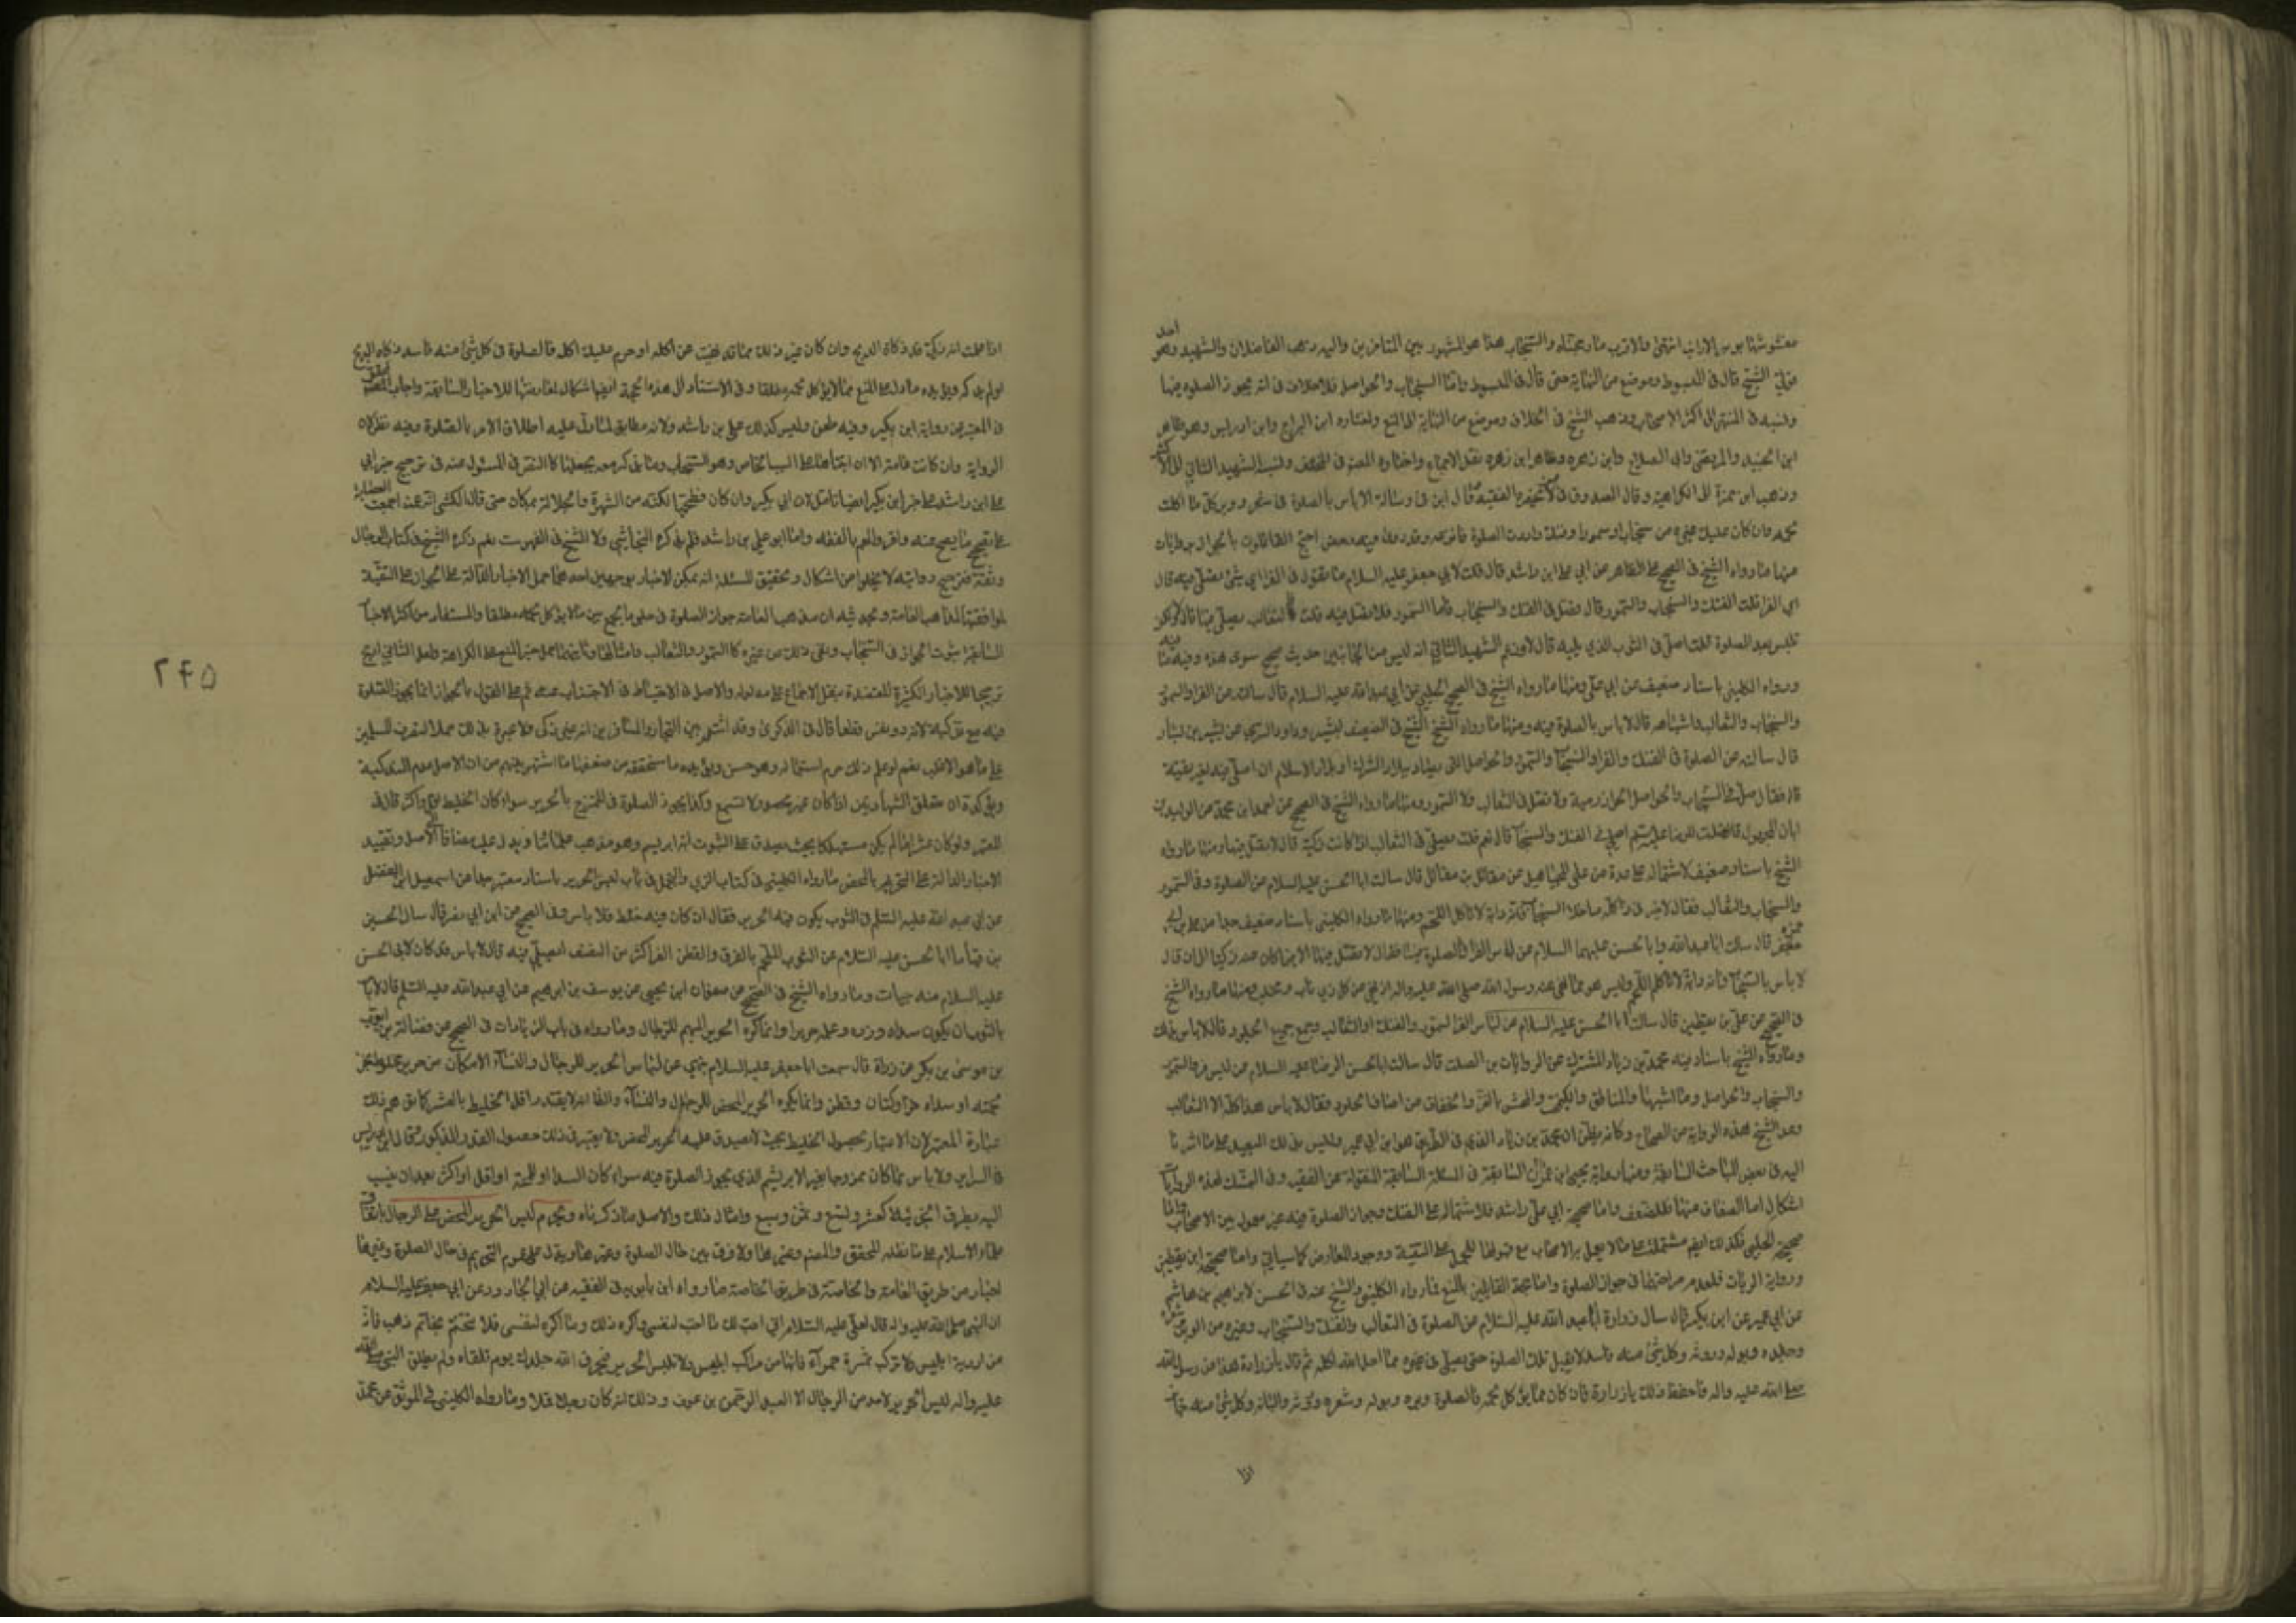 مغشوشها بوبر الارانب انتهى والاقرب ما رجحناه والسنجاب هذا هو المشهور بين المتاخرين واليه ذهب الفاضلان والشهيد وهو احد
قولي الشيخ قال في المبسوط وموضع من النهاية حتى قال في المبسوط واما السنجاب والحواصل فلا خلاف في انه يجوز الصلوة فيها
ونسبه في المنتهى الى اكثر الاصحاب وذهب الشيخ في الخلاف وموضع من النهاية الى المنع واختاره ابن البراج وابن ادريس وهو ظاهر
ابن الجنيد والمرتضى وابي الصلاح وابن زهره وظاهر ابن زهره نقل الاجماع واختاره المصنف في المختلف ونسبه الشهيد الثاني الى الاكثر
وذهب ابن حمزة الى الكراهية وقال الصدوق في الفقيه قال ابي في رسالة الا باس بالصلوة في شعر ووبر كل ما اكلت
لحمه وان كان عليك غيره من سنجاب او سمور او فنك واردت الصلوة فانزعه وقد روي فيه رخص احتج القائلون بالجواز بروايات
منها ما رواه الشيخ في الصحيح على الظاهر عن ابي علي ابن راشد قال قلت لابي جعفر عليه السلام ما تقول في الفرا اي شئ يصلى فيه قال
اي الفرا قلت الفنك والسنجاب والسمور قال فصل في الفنك والسنجاب فاما السمور فلا تصل فيه قلت فالثعالب يصلى فيها قال لا ولكن
تلبس بعد الصلوة قلت اصلي في الثوب الذي يليه قال لا وزعم الشهيد الثاني انه ليس من الجانبين حديث صحيح سوى هذه وفيه ما فيه
ورواه الكليني باسناد ضعيف عن ابي علي ومنها ما رواه الشيخ في الصحيح الحلبي عن ابي عبد الله عليه السلام قال سالته عن الفرا والسمور
والسنجاب والثعالب واشباهه قال لا باس بالصلوة فيه ومنها ما رواه الشيخ في الضعيف لبشير وداود الصرمي عن بشير بن بشار
قال سالته عن الصلوة في الفنك والفرا والسنجاب والسمور والحواصل التي تصاد ببلاد الشرك او بلاد الاسلام ان اصلي فيه لغير تقية
قال فقال صل في السنجاب والحواصل الخوارزمية ولا تصل في الثعالب ولا السمور ومنها ما رواه الشيخ في الصحيح عن احمد ابن محمد عن الوليد بن
ابان المجهول قال قلت للرضا عليه السلم اصلي في الفنك والسنجاب قال نعم قلت يصلى في الثعالب اذا كانت ذكية قال لا تصل فيها ومنها ما رواه
الشيخ باسناد ضعيف لاشتماله على عدة من علي المجاهيل عن مقاتل بن مقاتل قال سالت ابا الحسن عليه السلام عن الصلوة في السمور
والسنجاب والثعالب فقال لا خير في ذا كله ما خلا السنجاب فانه دابة لا تاكل اللحم ومنها ما رواه الكليني باسناد ضعيف جدا عن علي بن ابي
حمزه قال سالت ابا عبد الله وابا الحسن عليهما السلام عن لباس الفرا والصلوة فيها فقال لا تصل فيها الا فيما كان منه ذكيا الى ان قال
لا باس بالسنجاب فانه دابة لا تاكل اللحم وليس هو مما نهى عنه رسول الله صلى الله عليه واله اذ نهى عن كل ذي ناب ومخلب ومنها ما رواه الشيخ
في الصحيح عن علي بن يقطين قال سالت ابا الحسن عليه السلام عن لباس الفرا والسمور والفنك والثعالب وجميع الجلود قال لا باس بذلك
وما رواه الشيخ باسناد فيه محمد بن زياد المشترك عن الريان بن الصلت قال سالت ابا الحسن الرضا عليه السلام عن لبس فرا السمور
والسنجاب والحواصل وما اشبهها والمناطق والكيمخت والمحشو بالقز والخفاف من اصناف الجلود فقال لا باس بهذا كله الا الثعالب
وعد الشيخ هذه الرواية من الصحاح وكانه يظن ان محمد بن زياد الذي في الطريق هو ابن ابي عمير وليس بذلك البعيد على ما اشرنا
اليه في بعض المباحث السابقة ومنها رواية يحيى ابن عمران السابقة في المسئلة السابقة المنقولة عن الفقيه وفي التمسك بهذه الروايات
اشكال اما الضعاف منها فللضعف واما صحيحة ابي علي راشد فلاشتماله على الفنك وجواز الصلوة فيه غير معمول بين الاصحاب واما
صحيحة الحلبي فكذلك ايضا مشتملة على ما لا يعمل به الاصحاب مع قبولها للحمل على التقية ووجود المعارض كما سياتي واما صحيحة ابن يقطين
ورواية الريان فلعدم صراحتهما في جواز الصلوة واما حجة القايلين بالمنع فما رواه الكليني والشيخ عنه في الحسن لابراهيم بن هاشم
عن ابي عمير عن ابن بكير قال سال زرارة ابا عبد الله عليه السلام عن الصلوة في الثعالب والفنك والسنجاب وغيره من الوبر
وجلده وبوله وروثه وكل شئ منه فاسد لا يقبل تلك الصلوة حتى يصلي في غيره مما احل الله اكله ثم قال يا زرارة هذا عن رسول الله
صلى الله عليه واله فاحفظ ذلك يا زرارة فان كان مما يؤكل لحمه فالصلوة في وبره وبوله وشعره وروثه والبانه وكل شئ منه جايز
اذا
اذا علمت انه ذكي قد ذكاه الذبح وان كان غير ذلك مما قد نهيت عن اكله او حرم عليك اكله فالصلوة في كل شئ منه فاسد ذكاه الذبح
او لم يذكه ويؤيده ما دل على المنع مما لا يؤكل لحمه مطلقا وفي الاستناد الى هذه الحجة ايضا اشكال لمعارضتها للاخبار السابقة واجاب المصنف
في المعتبر عن رواية ابن بكير وفيه طعن وليس كذلك علي بن راشد ولانه مطابق لما دل عليه اطلاق الامر بالصلوة وفيه نظر لان
الرواية وان كانت عامة الا ان ابتناها على السبب الخاص وهو السنجاب وما ذكر معه يجعلها كالنص في المسئول عنه في ترجيح خبر ابي
علي ابن راشد على خبر ابن بكير ايضا تامل لان ابن بكير وان كان فطحيا لكنه من الشهرة والجلالة بمكان حتى قال الكشي انه ممن اجمعت العصابة
على تصحيح ما يصح عنه واقروا لهم بالفقه واما ابو علي بن راشد فلم يذكره النجاشي ولا الشيخ في الفهرست نعم ذكره الشيخ في كتاب الرجال
وثقه فترجيح روايته لا يخلو من اشكال وتحقيق المسئلة انه يمكن الاخبار بوجهين احدهما حمل الاخبار الدالة على الجواز على التقية
لموافقتها لمذاهب العامة ويؤيده ان مذهب العامة جواز الصلوة في جلود ما يجمع بين ما لا يؤكل لحمه مطلقا والمستفاد من اكثر الاخبار
السابقة ثبوت الجواز في السنجاب ونفى ذلك من غيره كالسمور والثعالب وامثالها وثانيهما حمل خبر المنع على الكراهة ولعل الثاني ارجح
ترجيحا للاخبار الكثيرة المعتضدة بنقل الاجماع على مدلوله والاصل في الاحتياط في الاجتناب عنه ثم على القول بالجواز انما يجوز الصلوة
فيه مع تذكيته لانه ذو نفس قطعا قال في الذكرى وقد اشتهر بين التجار والمسافرين انه غير ذكي ولا عبرة بذلك حملا لتصرف المسلمين
على ما هو الاغلب نعم لو علم ذلك حرم استعماله وهو حسن ويؤيده ما سنحققه من ضعف ما اشتهر بينهم من ان الاصل عدم التذكية
ويؤكده ان متعلق الشهادتين اذا كان غير محصور لا تسمع وكذا يجوز الصلوة في الممتزج بالحرير سواء كان الخليط اقل او اكثر قال في
المعتبر ولو كان عشرا ما لم يكن مستهلكا بحيث يصدق على الثوب انه ابريسم وهو مذهب علمائنا ويدل عليه مضافا الى الاصل وتقييد
الاخبار الدالة على التحريم بالمحض ما رواه الكليني في كتاب الزي والتجمل في باب لبس الحرير باسناد معتبر جدا عن اسمعيل ابن الفضل
عن ابي عبد الله عليه السلم في الثوب يكون فيه الحرير فقال ان كان فيه خلط فلا باس وفي الصحيح عن ابن ابي نصر قال سال الحسين
بن قياما ابا الحسن عليه السلام عن الثوب الملحم بالقز والقطن القز اكثر من النصف ايصلى فيه قال لا باس قد كان لابي الحسن
عليه السلام منه جبات وما رواه الشيخ في الصحيح عن صفوان ابن يحيى عن يوسف بن ابراهيم عن ابي عبد الله عليه السلم قال لا باس
بالثوب ان يكون سداه وزره وعلمه حريرا وانما كره الحرير المبهم للرجال وما رواه في باب الزيادات في الصحيح عن فضالة بن ايوب
بن موسى بن بكر عن زرارة قال سمعت ابا جعفر عليه السلام ينهى عن لباس الحرير للرجال والنساء الا ما كان من حرير مخلوط بخز
لحمته او سداه خز او كتان وقطن وانما يكره الحرير المحض للرجال والنساء والظاهر انه لا يتقدر اقل الخليط بالعشر كما يوهم ذلك
عبارة المعتبر لان الاعتبار بحصول الخليط بحيث لا يصدق عليه الحرير المحض فلا يعتبر في ذلك حصول القدر المذكور وقال ابن ادريس
في السراير ولا باس بما كان ممزوجا بغير الابريشم الذي يجوز الصلوة فيه سواء كان السدا او اللحمة او اقل او اكثر بعد ان ينسب
اليه بطريق الجزئية كعشر وتسع وثمن وسبع وامثال ذلك والاصل ما ذكرناه ويحرم لبس الحرير المحض على الرجال باتفاق
علماء الاسلام على ما نقله المحقق والمصنف وغيرهما ولا فرق بين حال الصلوة وغيرها ويدل على عموم التحريم في حال الصلوة وغيرها
اخبار من طريق العامة والخاصة في طريق الخاصة ما رواه ابن بابويه في الفقيه عن ابي الجارود عن ابي جعفر عليه السلام
ان النبي صلى الله عليه واله قال لعلي عليه السلام اني احب لك ما احب لنفسي واكره لك ما اكره لنفسي فلا تتختم بخاتم ذهب فانه
من اردية ابليس ولا تركب بميثرة حمراء فانها من مراكب ابليس ولا تلبس الحرير فيحرق الله جلدك يوم تلقاه ولم يطلق النبي صلى الله
عليه واله لبس الحرير لاحد من الرجال الا لعبد الرحمن بن عوف وذلك انه كان رجلا قملا وما رواه الكليني في الموثق عن محمد
۲۴۵